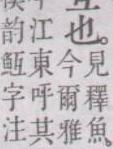 也。
見釋魚。
今爾雅
江東呼其
韵魱字注